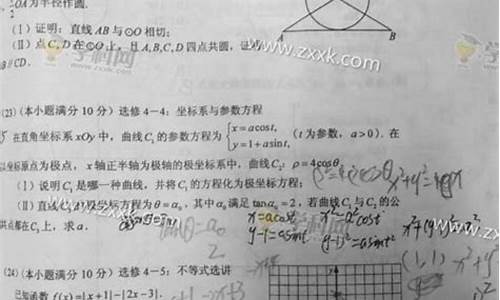 ½OA为半径作圆.
(I) 证明：直线 AB 与⊙O 相切；
(II) 点 C, D 在⊙O 上，且 A,B,C,D 四点共圆，证
AB∥CD.
A B
学科网
www.zxxk.com
(23)(本小题满分 10 分) 选修 4－4：坐标系与参数方程
在直角坐标系 xOy 中，曲线 C₁ 的参数方程为 {x=acost, y=1+asint, (t 为参数，a>0). 在
以坐标原点为极点，x 轴正半轴为极轴的极坐标系中，曲线 C₂: ρ=4cosθ.
(I) 说明 C₁ 是哪一种曲线，并将 C₁ 的方程化为极坐标方程；
(II) 直线 C₃ 的极坐标方程为 θ=α₀，其中 α₀ 满足 tanα₀=2，若曲线 C₁ 与 C₂ 的公
共点都在 C₃ 上，求 a.
x=acost
y-1=asint
(1,1)
www.zxxk.com
(24)(本小题满分 10 分) 选修 4－5：不等式选讲
已知函数 f(x)=|x+1|-|2x-3|.